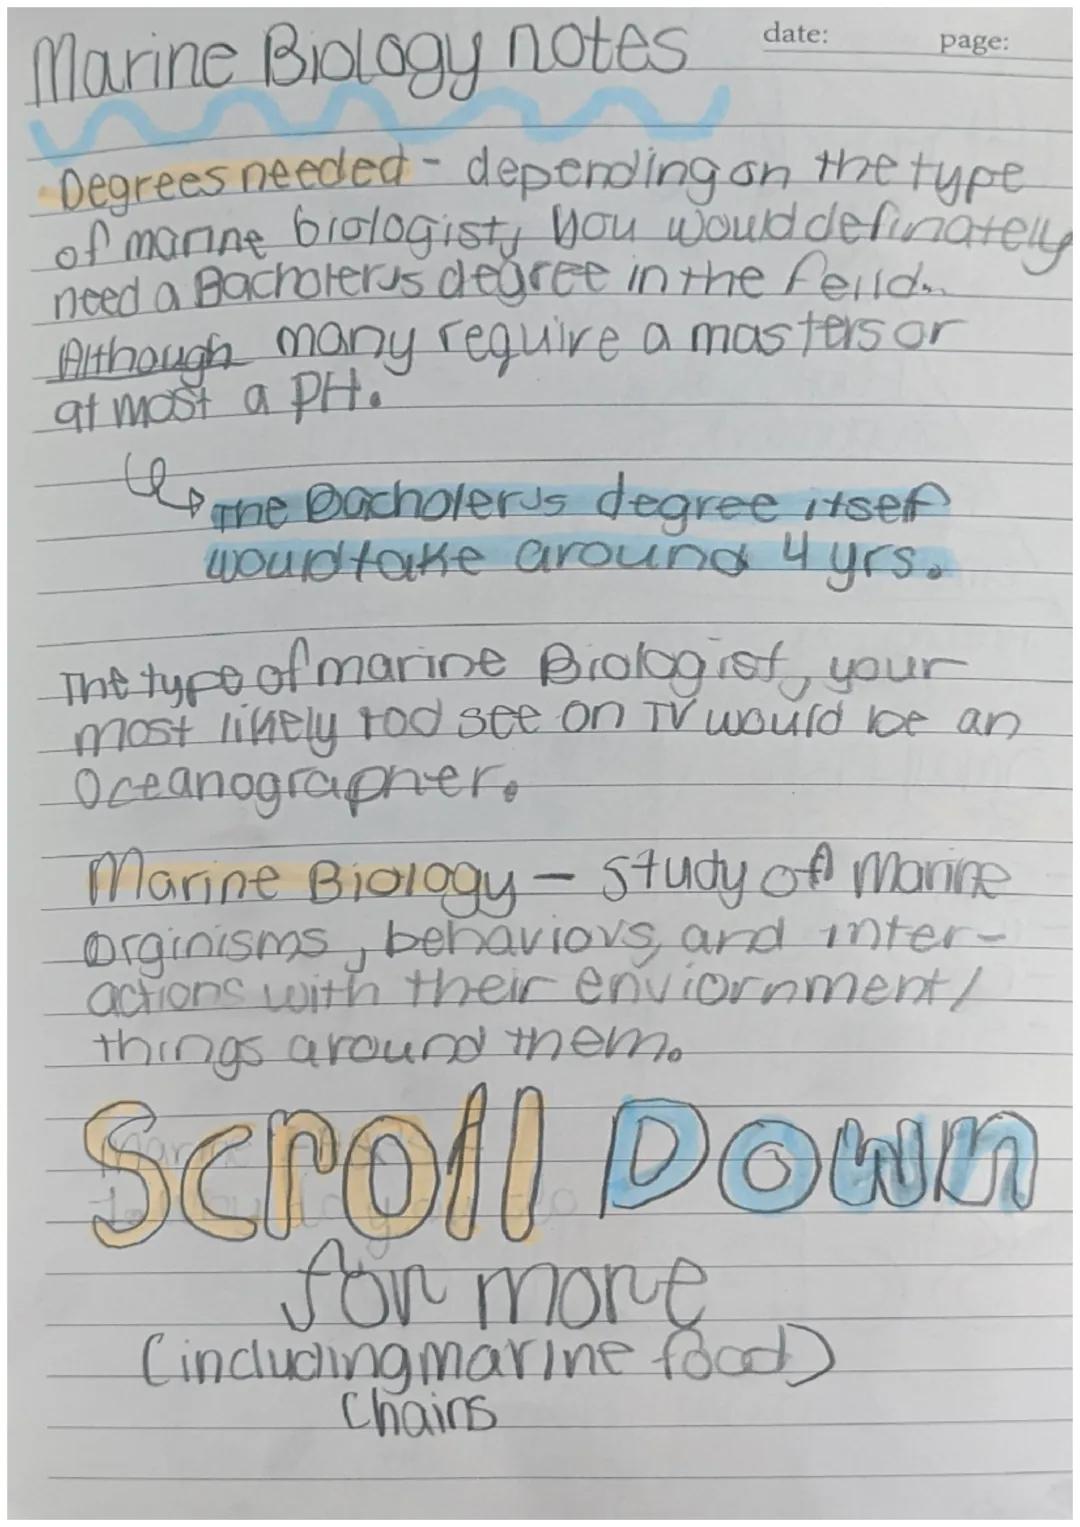 Marine Biology notes
date:
page:
Degrees needed - depending on the type
of marine biologist, you would definately
need a Bacholerus degree in the feild.
Although many require a masters or
at most a PH.
The Bacholerus degree itself
would take around 4 yrs.
The type of marine Biologist, your
most likely to see on TV would be an
Oceanographer.
Marine Biology - study of Marine
orginisms, behaviors, and inter-
actions with their enviornment/
things around them.
Scroll Down
for more
(including marine food)
Chains